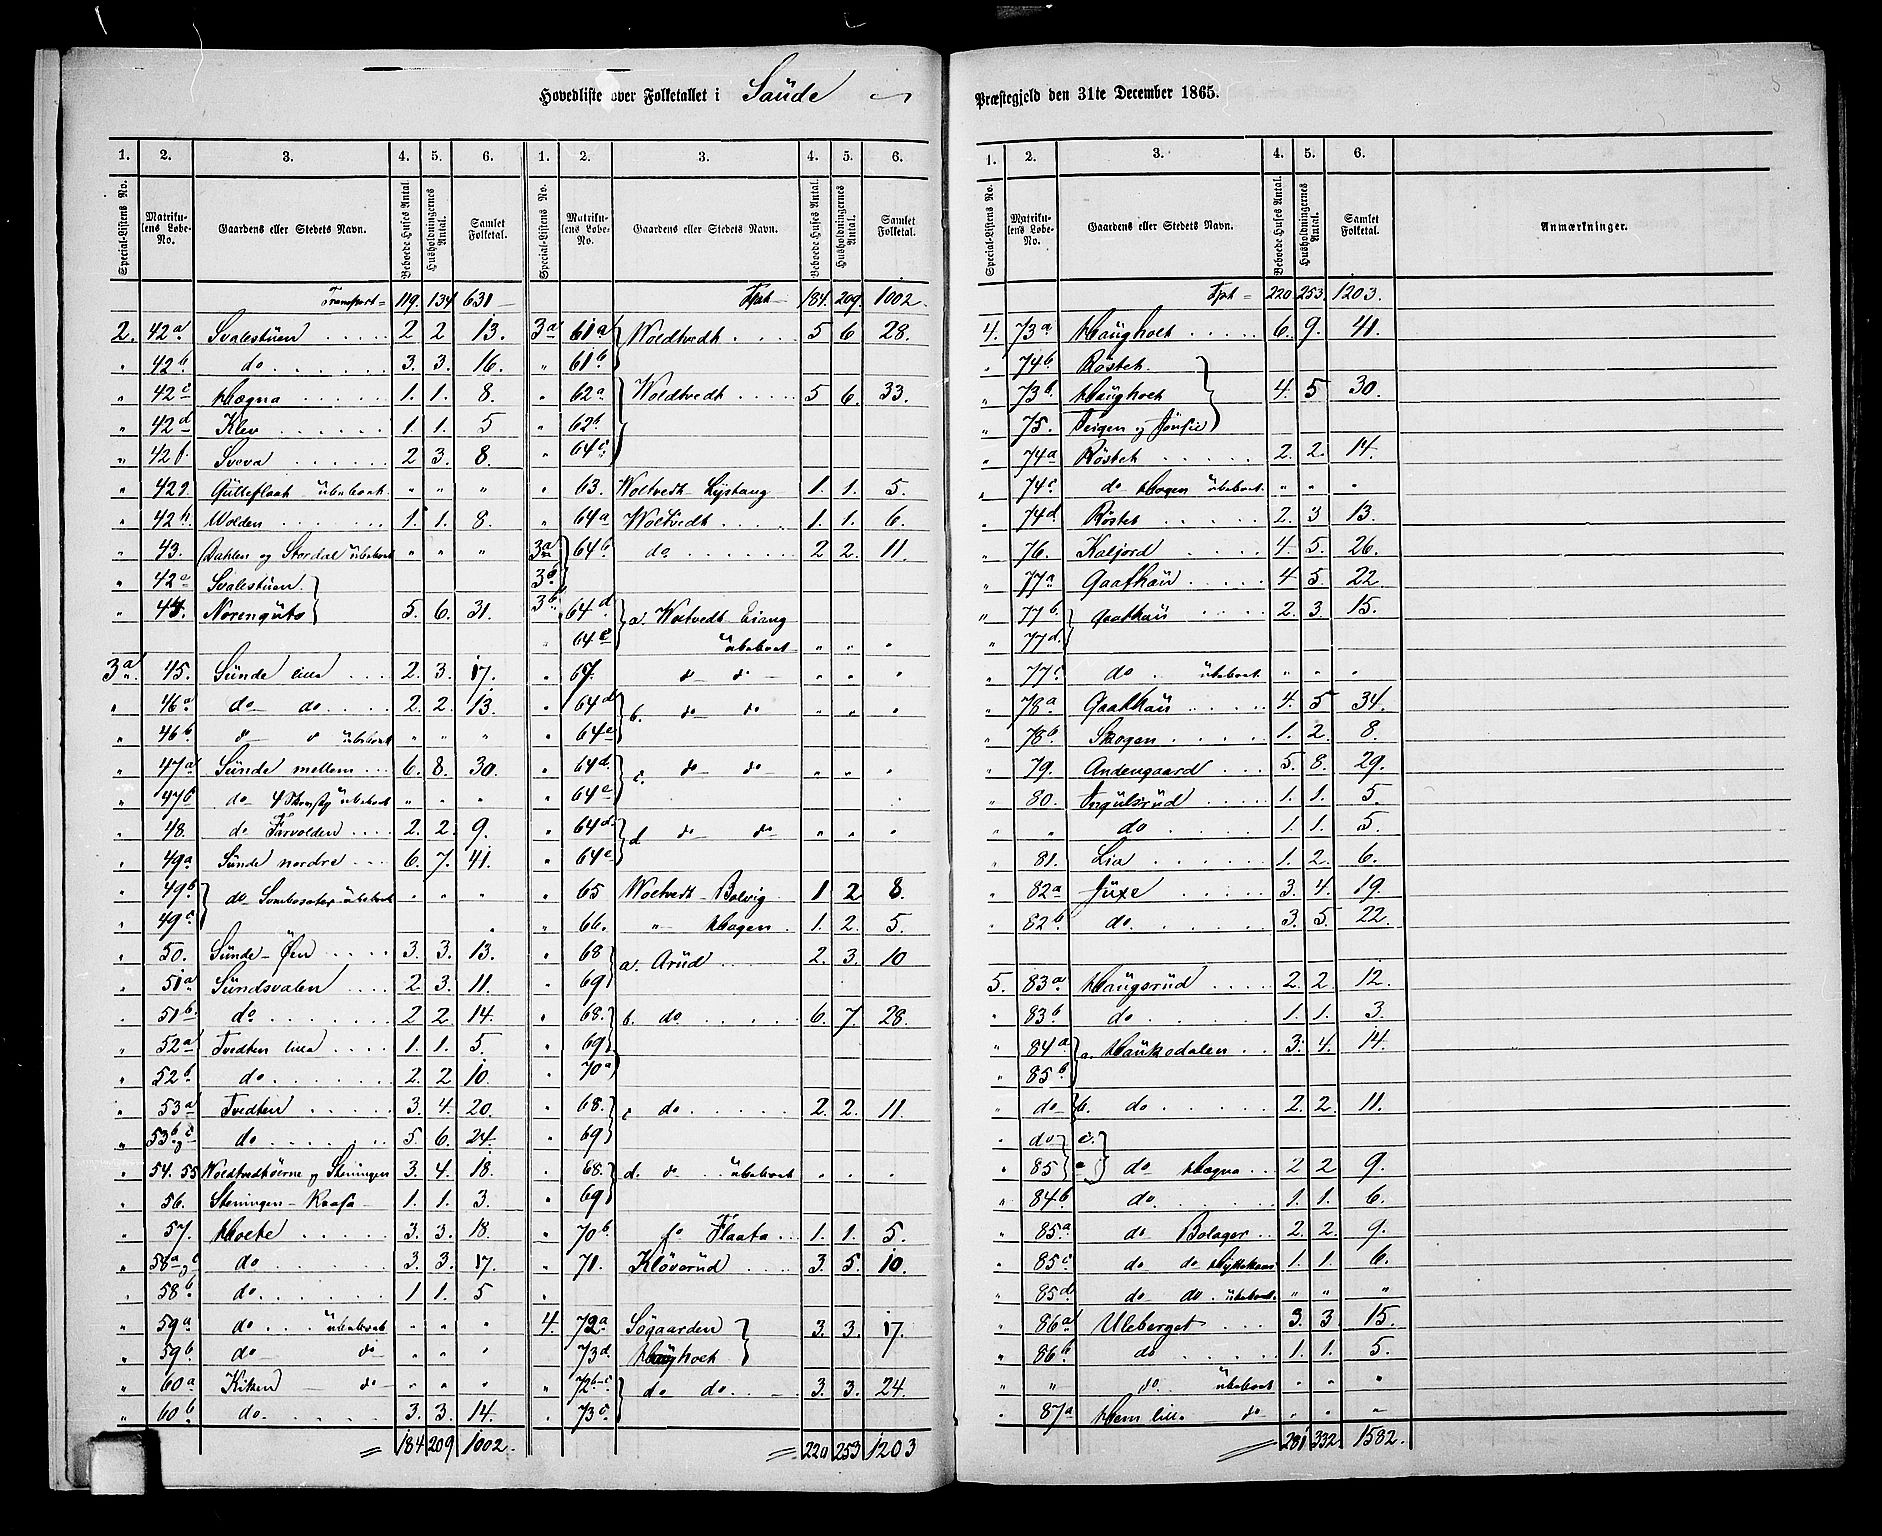 Hovedliste over Folketallet i Saüde
Præstegjeld den 31te December 1865.
1. 2. 3. 4. 5. 6. 1. 2. 3. 4. 5. 6.
Special-Listens No. Matrikulens Løbe-No. Gaardens eller Stedets Navn. Beboede Huses Antal. Husholdningernes Antal. Samlet Folketal. Special-Listens No. Matrikulens Løbe-No. Gaardens eller Stedets Navn. Beboede Huses Antal. Husholdningernes Antal. Samlet Folketal.
Transport = 119. 134 631
2. 42a Svalestüen 2 2 13.
" 42b do 3. 3. 16.
" 42c Hægna 1. 1. 8.
" 42d Klev 1. 1. 5
" 42f. Sveva 2 3. 8.
" 42g Gülleflaat übeboet " " "
" 42h Wolden 1. 1. 8.
" 43. Dahlen og Stordal übeboet " " "
" 42e Svalestüen
" 44. Norengüto 5. 6. 31.
3a 45. Sünde lille 2. 3. 17.
" 46a do do 2. 2. 13.
" 46b d d übeboet " " "
" 47a Sünde mellem 6. 8. 30.
" 47b do übeboet " " "
" 48. do Farvolden 2. 2. 9.
" 49a Sünde nordre 6. 7. 41.
" 49b do übeboet " " "
" 49c
" 50. Sünde-Øen 3. 3. 13.
" 51a Sündsvalen 2. 3. 11.
" 51b do 2 2. 14.
" 52a Tvedten lille 1. 1. 5.
" 52b do 2. 2 10.
" 53a Tvedten 3. 4. 20.
" 53b og c do 5. 6. 24.
" 54. 55 og Steningen 3. 4. 18.
" 56. Steningen-Raasa 1. 1. 3.
" 57. Hoete 3. 3. 18.
" 58a og c do 3. 3. 17.
" 58b do 1 1. 5
" 59a do übeboet " " "
" 59b do do " " "
" 60a Kiken do " " "
" 60b do 3. 3. 14.
= 184 209 1002.
Tpt 184. 209. 1002.
3a 61a Woldtvedt 5 6 28.
" 61b
" 62a Woldtvedt 5 6. 33.
" 62b
" 64c
" 63. Woltvedt Lystang 1. 1. 5.
" 64a Woltvedt 1. 1. 6.
3a 64b do 2 2. 11.
3b
3b. 64d a. Woltvedt Liang
" 64e übeboet " " "
" 67. d d " " "
" 64d b. do do " " "
" 64e
" 64d. c. do do " " "
" 64e
" 64d. d do do " " "
" 64e
" 65 Woltvedt-Bolvig 1 2 8.
" 66. " Hagen 1. 2. 5.
" 68 a. Arüd 2. 3. 10
" 69
" 68. b. do 6. 7. 28.
" 69
" 70a
" 68. c do 2. 2. 11.
" 69
" 68. d. do übeboet " " "
" 69
" 70b do Flaata 1. 1. 5.
" 71. Kløverüd 3. 5. 10.
4. 72a Søgaarden 3. 3. 17.
73d. Haügholt
" 72b-c do do 3. 3. 24.
" 73c.
= 220 253 1203
1. 2. 3. 4. 5. 6.
Special-Listens No. Matrikulens Løbe-No. Gaardens eller Stedets Navn. Beboede Huses Antal. Husholdningernes Antal. Samlet Folketal. Anmærkninger.
Tpt = 220 253. 1203.
4. 73a Haügholt 6. 9. 41.
" 74b Røstet
" 73b. Haügholt 4. 5 30.
" 75. Teigen og
" 74a Røstet 2. 2. 14.
" 74c do Hagen übeboet " " "
" 74d Røstet 2. 3 13.
" 76. Kaljord 4. 5. 26.
" 77a Gaathaü 4 5. 22.
" 77b. Gaathaü 2. 3. 15.
" 77d.
" 77c do übeboet " " "
" 78a Gaathaü 4. 5 34.
" 78b Skogen 1. 2. 8.
" 79. Andengaard 5. 8. 29.
" 80. Ingülsrüd 1. 1. 5.
" " do 1. 1. 5.
" 81. Lia 1. 2. 6.
" 82a Jüxe 3. 4. 19.
" 82b do 3. 5. 22.
5. 83a Haügsrüd 2. 2. 12.
" 83b do 1. 1. 3.
" 84a a. Haükedalen 3. 4. 14.
" 85b
" do b. do 2. 2. 11.
" do c.
" 85 a do Hægna 2 2 9.
" 84b do 1. 1. 6.
" 85a do Bolager 2. 2. 9.
" 85c do do 1. 1. 6.
" 85d do do. übeboet " " "
" 86a Uleberget 3. 3 15.
" 86b do 1. 1. 5.
" " do übeboet " " "
" 87a Hem lille do " " "
= 281 332. 1582.